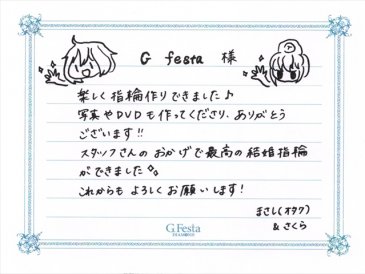 G festa 様
楽しく指輪作りできました♪
写真やDVDも作ってくださり、ありがとう
ございます!!
スタッフさんのおかげで最高の結婚指輪
ができました
これからもよろしくお願いします!
まさし(オタク)
&さくら
G.Festa